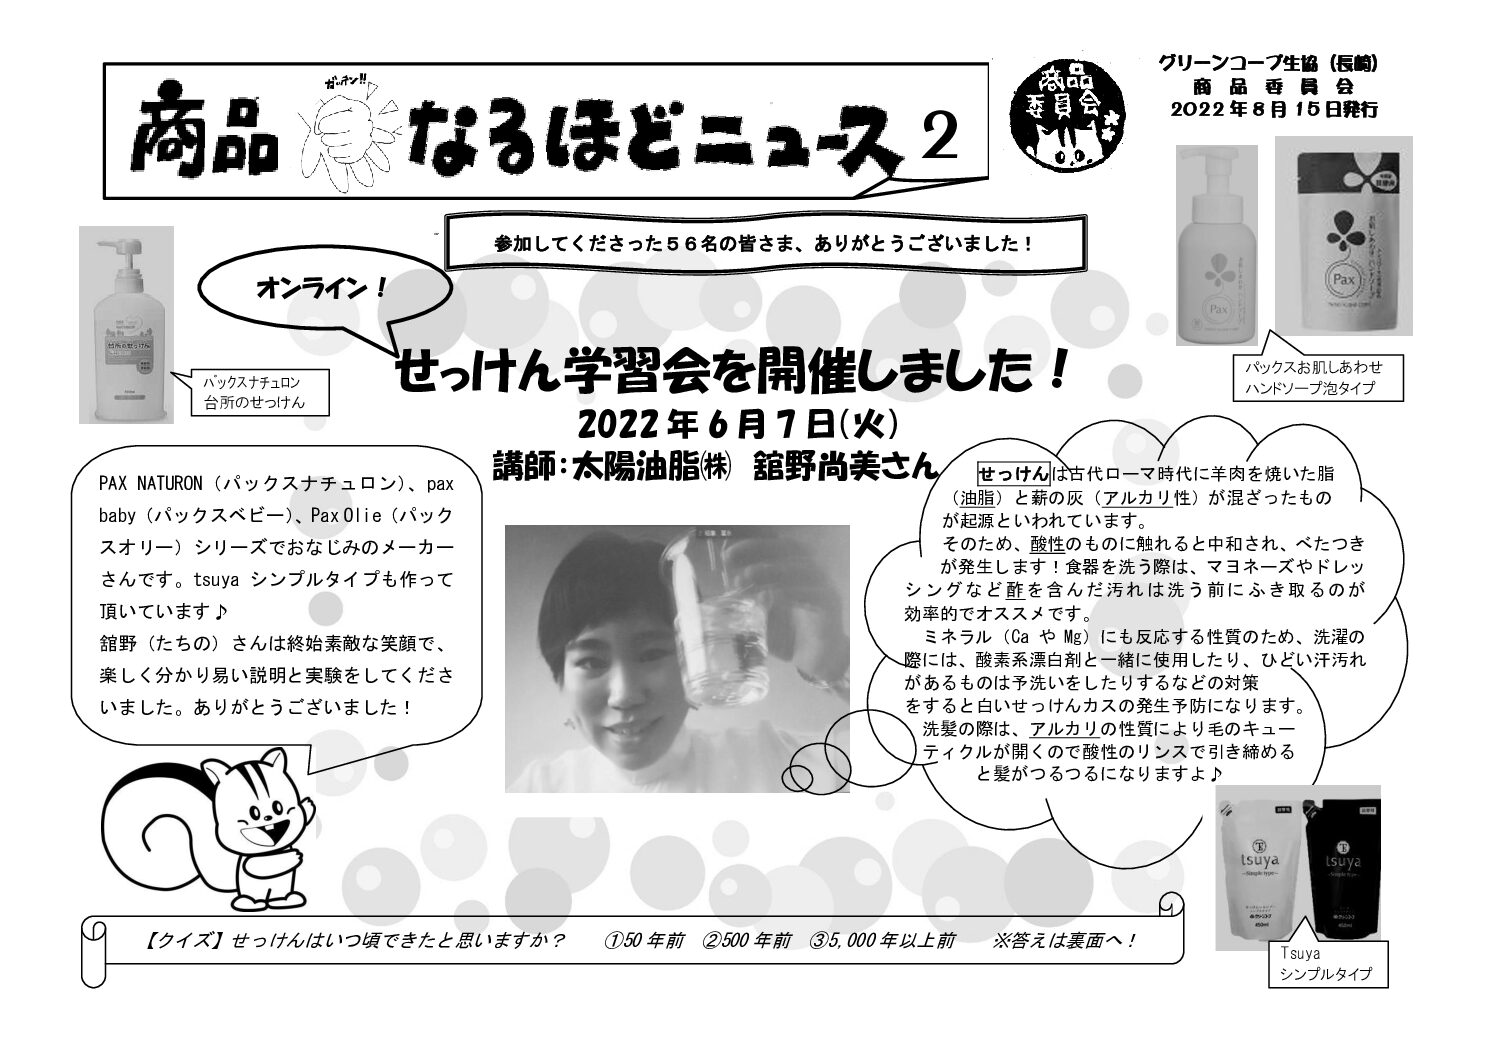 グリーンコープ生協（長崎）
商品委員会
2022年8月15日発行
ガッテン!!
商品なるほどニュース 2
商品
委員会
参加してくださった５６名の皆さま、ありがとうございました！
オンライン！
せっけん学習会を開催しました！
2022年6月7日（火）
講師：太陽油脂㈱　舘野尚美さん
パックスナチュロン
台所のせっけん
パックスお肌しあわせ
ハンドソープ泡タイプ
Pax
Pax
PAX NATURON（パックスナチュロン）、pax
baby（パックスベビー）、Pax Olie（パック
スオリー）シリーズでおなじみのメーカー
さんです。tsuya シンプルタイプも作って
頂いています♪
舘野（たちの）さんは終始素敵な笑顔で、
楽しく分かり易い説明と実験をしてくださ
いました。ありがとうございました！
せっけんは古代ローマ時代に羊肉を焼いた脂
（油脂）と薪の灰（アルカリ性）が混ざったもの
が起源といわれています。
そのため、酸性のものに触れると中和され、べたつき
が発生します！食器を洗う際は、マヨネーズやドレッ
シングなど酢を含んだ汚れは洗う前にふき取るのが
効率的でオススメです。
ミネラル（Ca や Mg）にも反応する性質のため、洗濯の
際には、酸素系漂白剤と一緒に使用したり、ひどい汗汚れ
があるものは予洗いをしたりするなどの対策
をすると白いせっけんカスの発生予防になります。
洗髪の際は、アルカリの性質により毛のキュー
ティクルが開くので酸性のリンスで引き締める
と髪がつるつるになりますよ♪
tsuya
Simple type
tsuya
Simple type
Tsuya
シンプルタイプ
【クイズ】せっけんはいつ頃できたと思いますか？　①50年前　②500年前　③5,000年以上前　※答えは裏面へ！